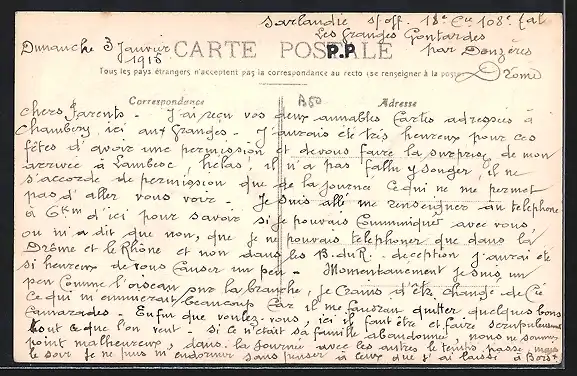 Sarlandie s/off. 18e Cie 108e tal
Les Granges Gontardes
Dimanche 3 Janvier
1916
CARTE POSTALE
P.P.
par Donzères
Drôme
Tous les pays étrangers n'acceptent pas la correspondance au recto (se renseigner à la poste
Correspondance
A50
Adresse
Chers Parents - J'ai reçu vos deux aimables Cartes adressées à
Chambéry, ici aux Granges - J'aurais été très heureux pour ces
fêtes d'avoir une permission et de vous faire la surprise de mon
arrivée à Lambesc, hélas! il n'a pas fallu y songer, il ne
s'accorde de permission que de la journée ce qui ne me permet
pas d'aller vous voir - Je suis allé me renseigner au telephone
à 6km d'ici pour savoir si je pouvais Communiquer avec vous,
on m'a dit que non, que je ne pouvais telephoner que dans la
Drôme et le Rhône et non dans les B. du R. deception j'aurai été
si heureux de vous Causer un peu - Momentanément je suis un
peu Comme l'oiseau sur la branche, je Crains d'être changé de Cie
Ce qui m'ennuierait beaucoup Car il me faudrait quitter quelques bons
Camarades - Enfin que voulez-vous, ici il faut être et faire scrupuleusement
tout ce que l'on veut - si ce n'était sa famille abandonnée, nous ne sommes
point malheureux, dans la journée avec les autres le temps passe, mais
le soir je ne puis m'endormir sans penser à ceux que j'ai laissé à